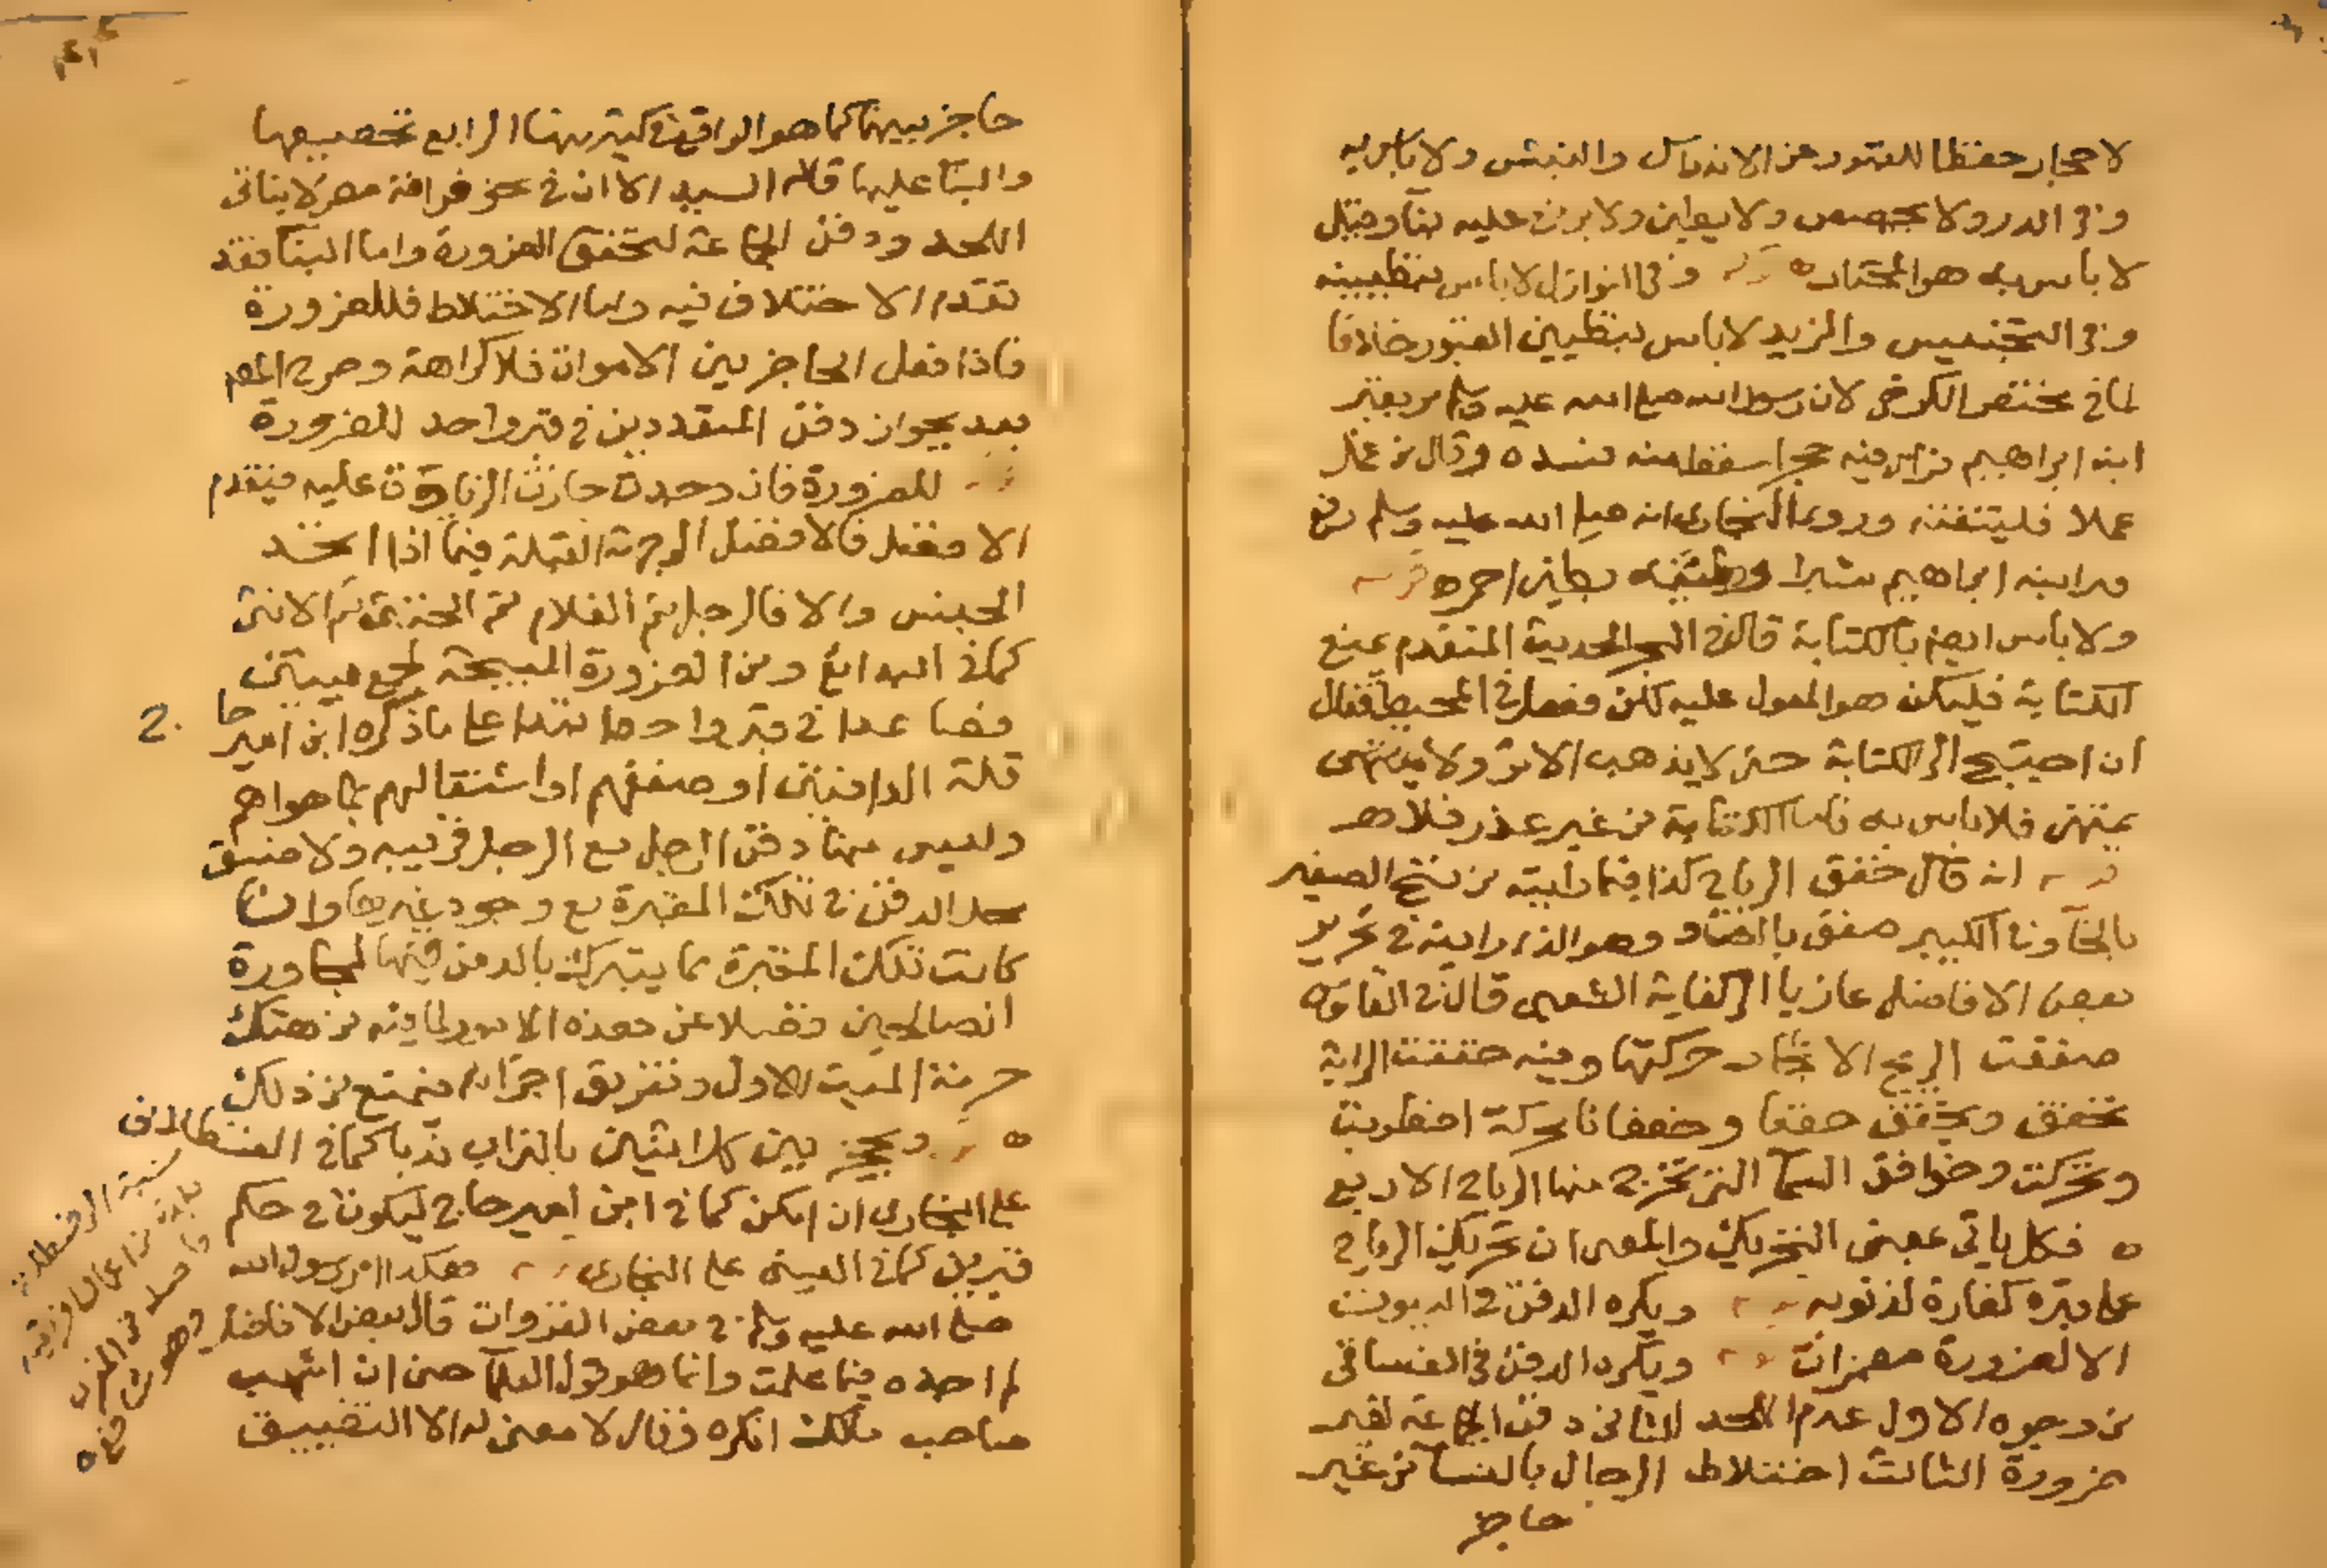 لاحجار حفظا للقبور عن الاندراس والنبش ولا باس به
وفي الدر ولا يجصص ولا يطين ولا يرفع عليه بنآ وقيل
لا باس به هو المختار ه وفي النوازل لا باس بتطيينه
وفي التجنيس والمزيد لا باس بتطيين القبور خلافا
لما في مختصر الكرخي لان رسول الله صلى الله عليه وسلم مر بقبر
ابنه ابراهيم فراى فيه حجرا سقط منه فسده وقال من عمل
عملا فليتقنه وروى البخارى انه صلى الله عليه وسلم رفع
قبر ابنه ابراهيم شبرا وطينه بطين احمر ه
ولا باس ايضا بالكتابة قال في البحر الحديث المتقدم يمنع
الكتابة فليكن هو المعول عليه لكن فصل في المحيط فقال
ان احتيج الى الكتابة حتى لا يذهب الاثر ولا يمتهن
يمتهن فلا باس به فاما الكتابة من غير عذر فلا ه
انه قال خفق الرياح كذا فيما رايته من نسخ الصغير
بالخآ وفي الكبير صفق بالصاد وهو الذى رايته في تحرير
بعض الافاضل عازيا الى كفاية الشعبي قال في القاموس
صفقت الريح الاشجار حركتها وفيه خفقت الراية
تخفق وتخفق خفقا وخفقانا محركة اضطربت
وتحركت وخوافق السمآ التي تخرج منها الرياح الاربع
ه فكل ياتي بمعنى التحريك والمعنى ان تحريك الرياح
على قبره كفارة لذنوبه ويكره الدفن في البيوت
الا لضرورة ويكره الدفن في الفساقي
من وجوه الاول عدم اللحد الثاني دفن الجماعة لغير
ضرورة الثالث اختلاط الرجال بالنسآ من غير
حاجز
حاجز بينهما كما هو الواقع في كثير منها الرابع تجصيصها
والبنآ عليها قاله السيد الا ان في نحو قرافة مصر لا يتاتى
اللحد ودفن الجماعة لتحقق الضرورة واما البنآ فقد
تقدم الاختلاف فيه واما الاختلاط فللضرورة
فاذا فعل الحاجز بين الاموات فلا كراهة وصرح المص
بعد بجواز دفن المتعددين في قبر واحد للضرورة
للضرورة فان وجدت جازت الزيادة عليه فيقدم
الافضل فالافضل الى جهة القبلة فيما اذا اتحد
الجنس والا فالرجل ثم الغلام ثم الخنثى ثم الانثى
كما في البدائع ومن الضرورة المبيحة لجمع ميتين
فصاعدا في قبر واحد ابتدا على ما ذكره ابن امير حاج
قلة الدافنين او ضعفهم او اشتغالهم بما هو اهم
وليس منها دفن الرجل مع الرجل قريبه ولا ضيق
محل الدفن في تلك المقبرة مع وجود غيرها وان
كانت تلك المقبرة مما يتبرك بالدفن فيها لمجاورة
الصالحين فضلا عن هذه الامور لما فيه من هتك
حرمة الميت الاول وتفريق اجزائه فيمنع من ذلك
ه ويحجز بين كل اثنين بالتراب ندبا كما في القسطلاني
على البخارى ان امكن كما في ابن امير حاج ليكون في حكم
قبرين كما في العيني على البخارى هكذا امر رسول الله
صلى الله عليه وسلم في بعض الغزوات قال بعض الافاضل
لم اجده فيما علمت وانما هو قول العلمآ حتى ان اشهب
صاحب مالك انكره وقال لا معنى له الا التضييق
نسبة الى قسطلانه
بلدة من اعمال افريقيه